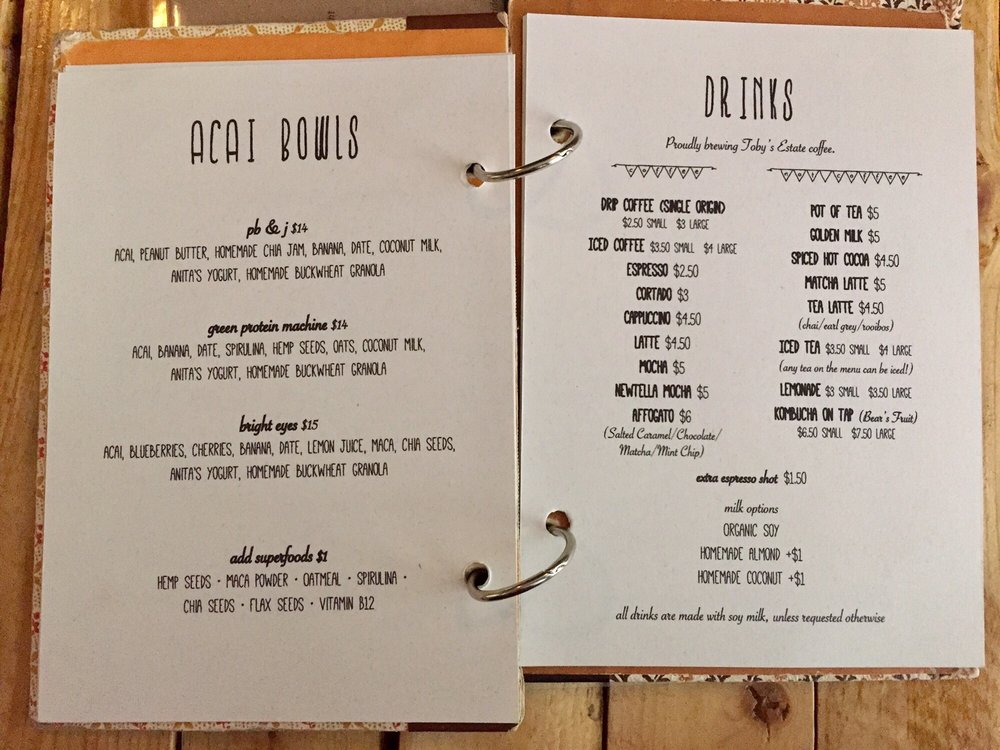 ACAI BOWLS
pb & j $14
ACAI, PEANUT BUTTER, HOMEMADE CHIA JAM, BANANA, DATE, COCONUT MILK,
ANITA'S YOGURT, HOMEMADE BUCKWHEAT GRANOLA
green protein machine $14
ACAI, BANANA, DATE, SPIRULINA, HEMP SEEDS, OATS, COCONUT MILK,
ANITA'S YOGURT, HOMEMADE BUCKWHEAT GRANOLA
bright eyes $15
ACAI, BLUEBERRIES, CHERRIES, BANANA, DATE, LEMON JUICE, MACA, CHIA SEEDS,
ANITA'S YOGURT, HOMEMADE BUCKWHEAT GRANOLA
add superfoods $1
HEMP SEEDS · MACA POWDER · OATMEAL · SPIRULINA ·
CHIA SEEDS · FLAX SEEDS · VITAMIN B12
DRINKS
Proudly brewing Toby's Estate coffee.
COFFEE
DRIP COFFEE (SINGLE ORIGIN)
$2.50 SMALL $3 LARGE
ICED COFFEE $3.50 SMALL $4 LARGE
ESPRESSO $2.50
CORTADO $3
CAPPUCCINO $4.50
LATTE $4.50
MOCHA $5
NEWTELLA MOCHA $5
AFFOGATO $6
(Salted Caramel/Chocolate/
Matcha/Mint Chip)
POT OF TEA $5
GOLDEN MILK $5
SPICED HOT COCOA $4.50
MATCHA LATTE $5
TEA LATTE $4.50
(chai/earl grey/rooibos)
ICED TEA $3.50 SMALL $4 LARGE
(any tea on the menu can be iced!)
LEMONADE $3 SMALL $3.50 LARGE
KOMBUCHA ON TAP (Bear's Fruit)
$6.50 SMALL $7.50 LARGE
extra espresso shot $1.50
milk options
ORGANIC SOY
HOMEMADE ALMOND +$1
HOMEMADE COCONUT +$1
all drinks are made with soy milk, unless requested otherwise